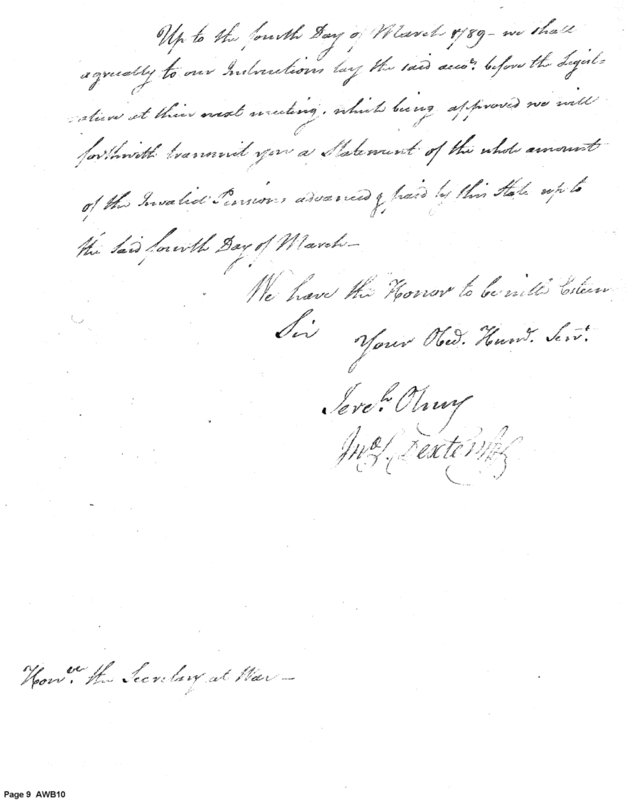 Up to the fourth Day of March 1789 - we shall
agreeably to our Instructions lay the said accot. before the Legisl-
ature at their next meeting, which being approved we will
forthwith transmit you a Statement of the whole amount
of the Invalid Pensions advanced & paid by this State up to
the said fourth Day of March -
We have the Honor to be with Esteem
Sir
Your Obed. Humb. Servt.
Jerech. Olney
Jno. S. Dexter
Honble. the Secretary at War -
Page 9 AWB10